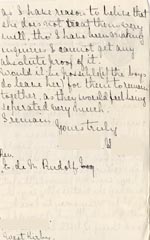 as I have reason to believe that
she does not treat them very
well, tho' I have been making
inquiries I cannot get any
absolute proof of it.
Would it be possible if the boys
do leave her for them to remain
together, as they would feel being
separated very much
I remain
Yours truly
Rev
E. de M. Rudolf Esq